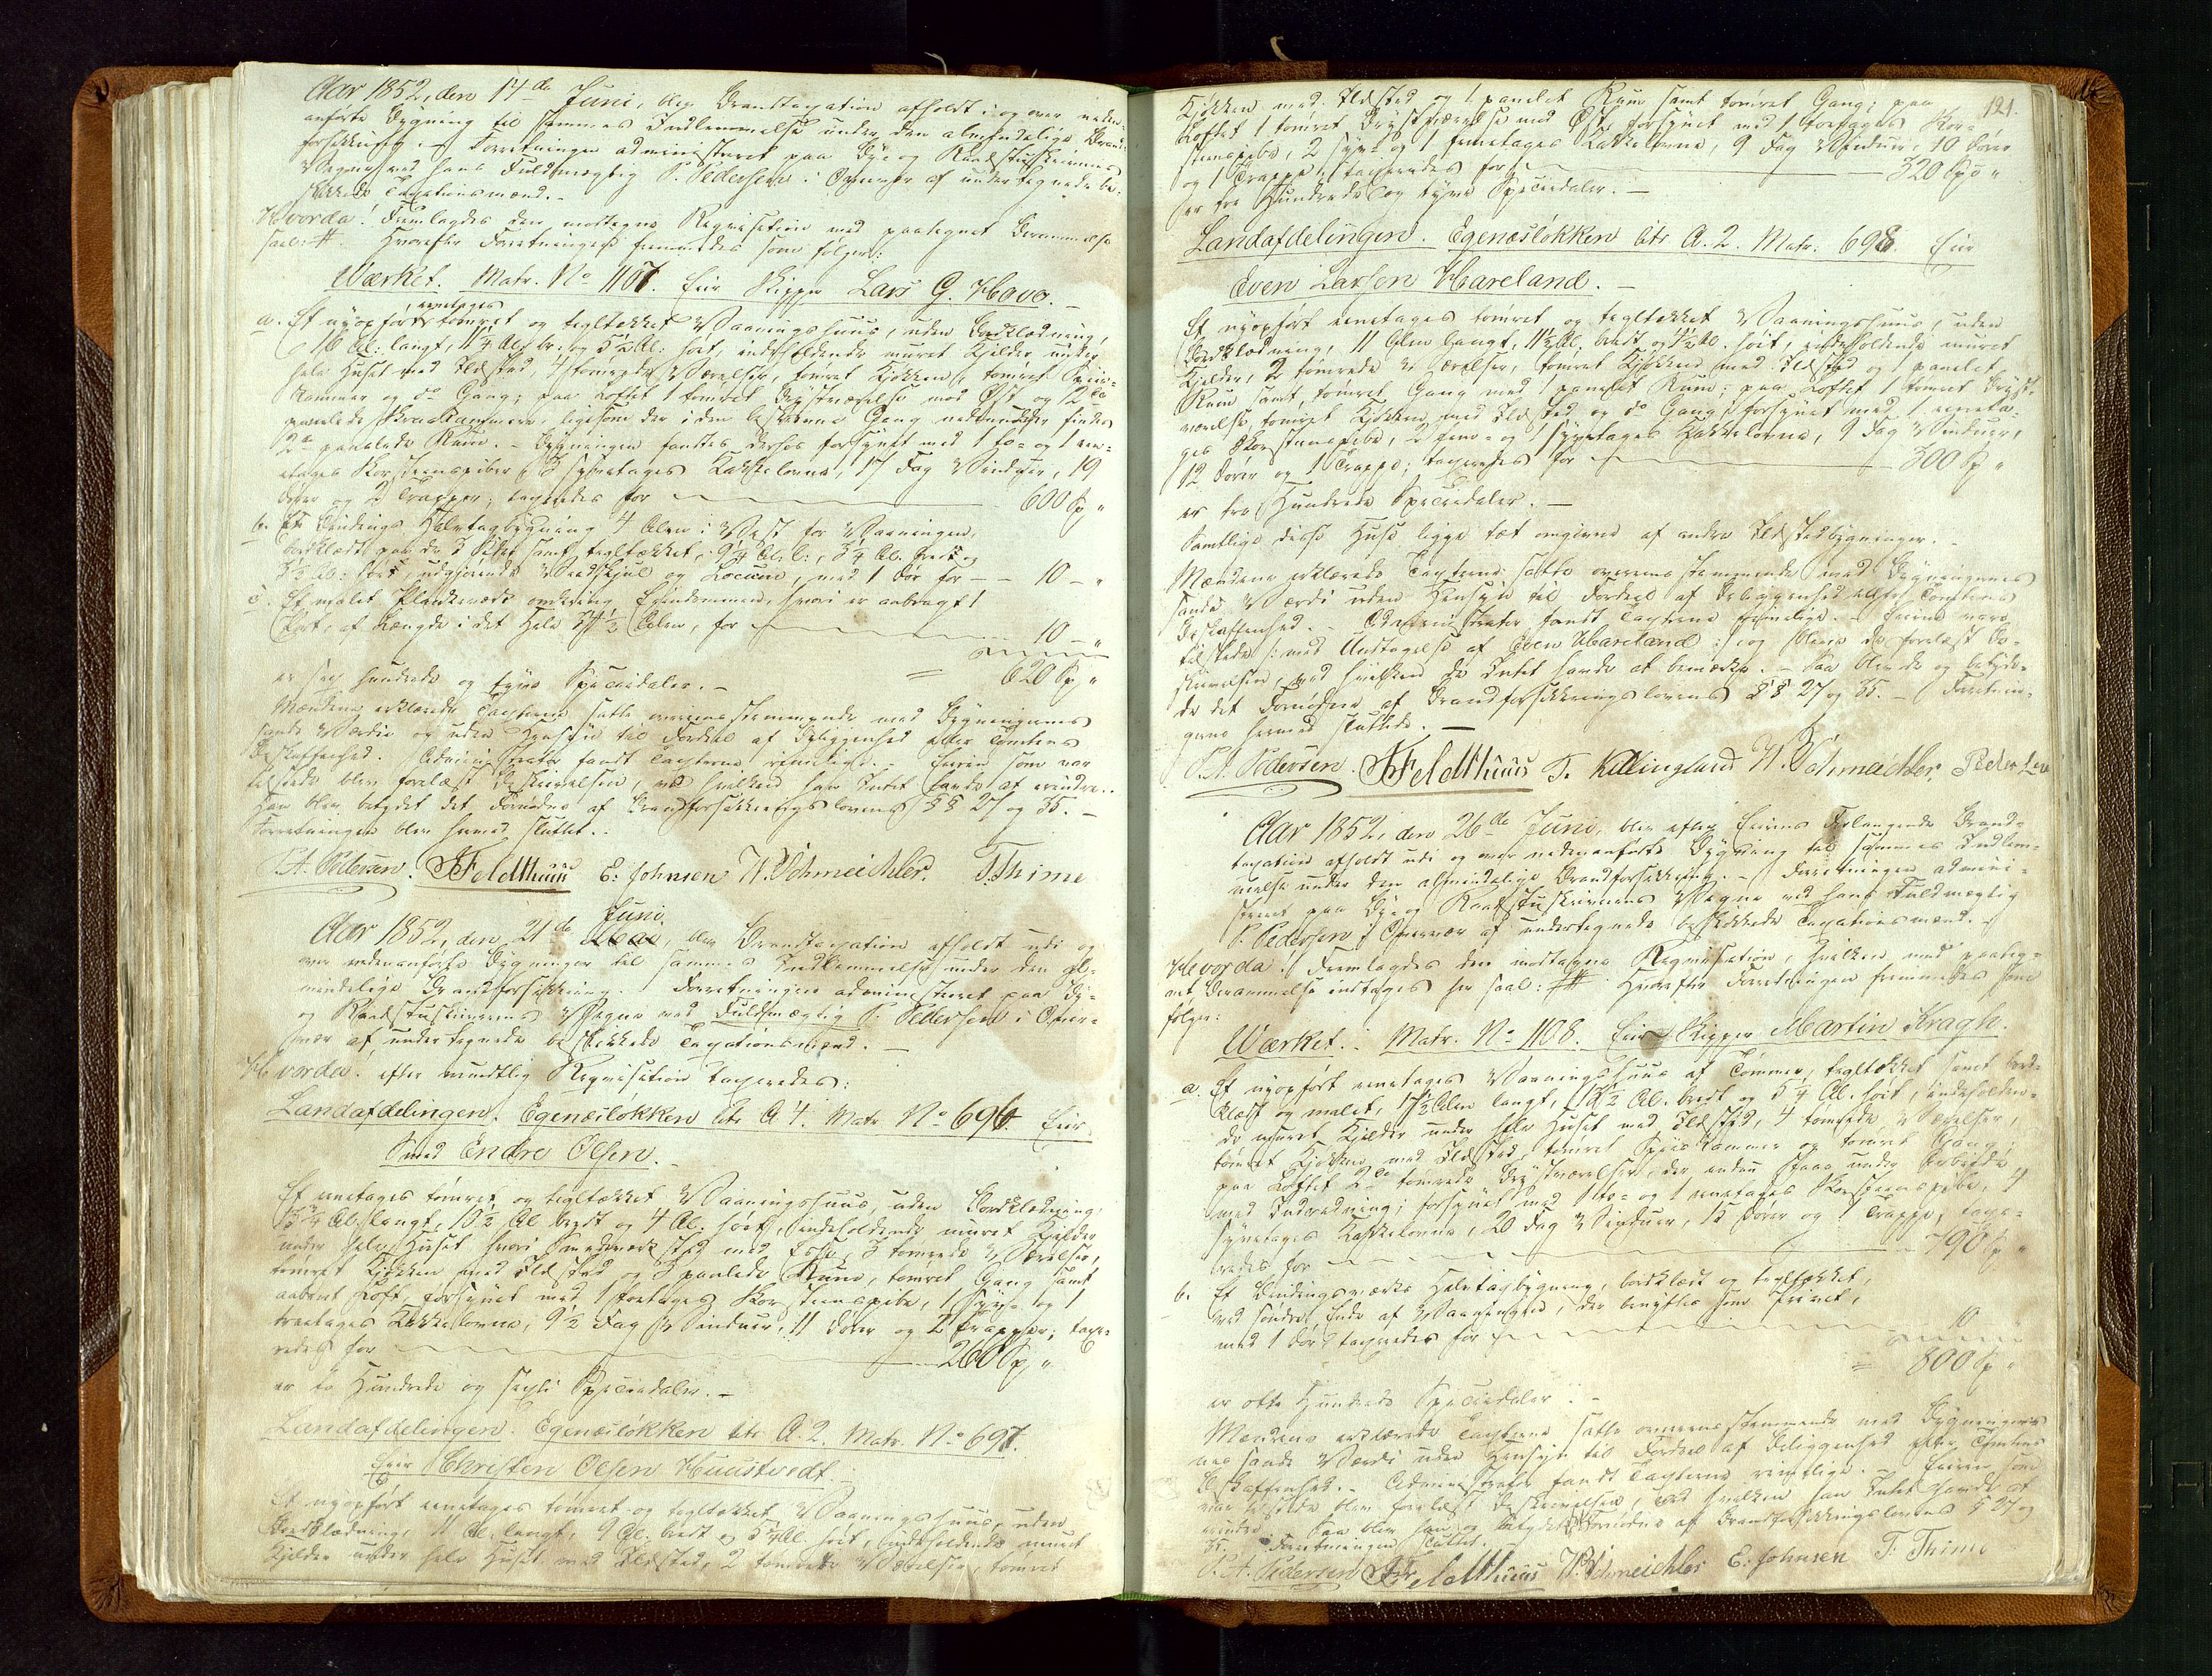 Aar 1852, den 14de Juni, blev Brandtaxation afholdt i og over neden-
anførte Bygning til sammes Indlemmelse under den almindelige Brand-
forsikkring. Forretningen administreret paa Bye og Raadstueskriverens
Vegne ved hans Fuldmægtig P. Pedersen i Overvær af undertegnede be-
skikkede Taxationsmænd. –
Hvorda! Fremlagdes den modtagne Reqvisition med paategnet Berammelse
saal: #. Hvorefter Forretningen fremmedes som følger:
Værket. Matr. No 1107. Eier Skipper Lars G. Hove. –
eenetages
a. Et nyopført tømret og tegltækket Vaaningshuus, uden Bordklædning,
Al: langt, 11¼ Al: br: og 5½ Al: høit, indeholdende muret Kjelder under
hele Huset med Ildsted, 4 tømrede Værelser, tømret Kjøkken, tømret Spiis-
kammer og do Gang; paa Loftet 1 tømret Qvistværelse mod Øst og 2de
panelede Skraakammere, ligesom der i den Gang findes
2de panelede Rum. – Bygningen fandtes derhos forsynet med 1 to- og 1 een-
etages Korsteenspiber, 3 syvetages Kakkelovne, 17 Fag Vinduer, 19
Døre og 2 Trapper; taxeredes for 600 Sp "
b. Et Bindings Halvtagbygning 4 Alen i Vest for Vaaningen,
bordklædt paa de 3 Sider samt tegltækket, 9¼ Al. l:, 3¼ Al. bredt og
3½ Al: høit, udgjørende Vedskjul og Locum, med 1 Dør for – – 10 – "
c. Et malet Plankeværk omkring Eiendommen, hvori er anbragt 1
Port, af Længde i det Hele 34½ Alen, for 10 – "
= 620 Sp "
er sex hundrede og tyve Speciedaler. –
Mændene erklærede Taxterne satte overensstemmende med Bygningernes
sande Værdie og uden Hensyn til Fordeel af Beliggenhed eller Tomtens
Beskaffenhed. Administrator fandt Taxterne rimelige. – Eieren som var
tilstede blev forelæst Beskrivelsen, ved hvilken han Intet havde at erindre. –
Han blev betydet det Fornødne af Brandforsikkringslovens §§ 27 og 35. –
Forretningen blev hermed sluttet. –
P. A. Pedersen. Feldthuus E. Johnsen W. Schmeichler. T. Thime
Juni
Aar 1852, den 21de Mai, blev Brandtaxation afholdt udi og
over nedenanførte Bygninger til sammes Indlemmelse under den al-
mindelige Brandforsikkring. Forretningen administreret paa By-
og Raadstueskriverens Vegne ved Fuldmægtig P. Pedersen i Over-
vær af undertegnede beskikkede Taxationsmænd. –
Hvorda! efter mundtlig Reqvisition taxeredes:
Landafdelingen. Egenæsløkken litr A 4. Matr No 696 Eier
Smed Endre Olsen. –
Et eenetages tømret og tegltækket Vaaningshuus, uden Bordklædning,
Al. langt, 10½ Al bredt og 4 Al. høit, indeholdende muret Kjelder
under hele Huset hvori Smedeværksted med Esse, 3 tømrede Værelser,
tømret Kjøkken med Ildsted og 3 panlede Rum, tømret Gang samt
aabent Loft, forsynet med 1 toetages Korsteenspibe, 1 syv- og 1
treetages Kakkelovne, 9½ Fag Vinduer, 11 Døre og 2 Trapper; taxe-
redes for 260 Sp "
er to Hundrede og sexti Speciedaler. –
Landafdelingen. Egenæsløkken litr A. 2. Matr. No 697.
Eier Christen Olsen Huustvedt. –
Et nyopført eenetages tømret og tegltækket Vaaningshuus, uden
Bordklædning, 11 Al. langt, 9 Al. bredt og Al. høit, indeholdende muret
Kjelder under hele Huset med Ildsted, 2 tømrede Værelser, tømret
121.
Kjøkken med Ildsted og 1 panelet Rum samt tømret Gang; paa
Loftet 1 tømret Qvistværelse mod Øst, forsynet med 1 toetages Kor-
steenspibe, 2 syv- og 1 femetages Kakkelovne, 9 Fag Vinduer, 10 Døre
og 1 Trappe; taxeredes for 320 Sp "
er tre Hundrede og tyve Speciedaler. –
Landafdelingen. Egenæsløkken litr A. 2. Matr. 698. Eier
Even Larsen Hareland. –
Et nyopført eenetages tømret og tegltækket Vaaningshuus, uden
Bordklædning, 11 Alen langt, 11½ Al. bredt og 4½ Al. høit, indeholdende muret
Kjelder, 2 tømrede Værelser, tømret Kjøkken med Ildsted og 1 panelet
Rum samt tømret Gang med 1 panelet Rum; paa Loftet 1 tømret Qvist-
værelse, tømret Kjøkken med Ildsted og do Gang; forsynet med 1 eeneta-
ges Korsteenspibe, 2 fem- og 1 syvetages Kakkelovne, 9 Fag Vinduer,
12 Døre og 1 Trappe; taxeredes for 300 Sp "
er tre Hundrede Speciedaler. –
Samtlige disse Huse ligge tæt omgivne af andre Ildstedbygninger. –
Mændene erklærede Taxterne satte overensstemmende med Bygningernes
sande Værdi uden Hensyn til Fordeel af Beliggenhed eller Tomternes
Beskaffenhed. – Administrator fandt Taxterne rimelige. – Eierne vare
tilstede /: med Undtagelse af Even Hareland :/ og bleve de forelæst Be-
skrivelsen, ved hvilken de Intet havde at bemærke. – Saa bleve de og betyde-
de det Fornødne af Brandforsikkringslovens §§ 27 og 35. – Forretnin-
gen hermed sluttede. –
P. A. Pedersen. Feldthuus T. Kallingland W. Schmeichler. Peder
Aar 1852, den 26de Juni, blev efter Eierens Forlangende Brand-
taxation afholdt udi og over nedenanførte Bygning til sammes Indlem-
melse under den almindelige Brandforsikkring. – Forretningen admini-
streret paa Bye og Raadstueskriverens Vegne ved hans Fuldmægtig
P. Pedersen i Overvær af undertegnede beskikkede Taxationsmænd. –
Hvorda! Fremlagdes den modtagne Reqvisition, hvilken med paateg-
net Berammelse indtages her saal: ##. Hvorefter Forretningen fremmedes som
følger:
Værket. Matr. No 1108. Eier Skipper Martin Kragh.
a. Et nyopført eenetages Vaaningshuus af Tømmer, tegltækket samt bord-
klædt og malet, Alen langt, Al. bredt og 5¼ Al. høit, indeholden-
de muret Kjelder under hele Huset med Ildsted, 4 tømrede Værelser,
tømret Kjøkken med Ildsted, tømret Spiiskammer og tømret Gang;
paa Loftet 2de tømrede Qvistværelser, der endnu staae under Arbeide
med Indredning; forsynet med 1 to- og 1 eenetages Korsteenspibe, 4
syvetages Kakkelovne, 20 Fag Vinduer, 15 Døre og 1 Trappe, taxe-
redes for 790 Sp "
b. Et Bindingsværks Halvtagbygning, bordklædt og tegltækket,
ved søndre Ende af Vaaningen, der benyttes som Privet,
med 1 Dør, taxeredes for 10 "
= 800 Sp "
er otte Hundrede Speciedaler. –
Mændene erklærede Taxterne satte overensstemmende med Bygninger-
nes sande Værdi uden Hensyn til Fordeel af Beliggenhed eller Tomtens
Beskaffenhed. – Administrator fandt Taxterne rimelige. – Eieren som
var tilstede blev forelæst Beskrivelsen, ved hvilken han Intet havde at
erindre. Saa blev han og betydet Fornødne af Brandforsikkringslovens § 27 og
35. Forretningen sluttet.
P. A. Pedersen Feldthuus W. Schmeichler E. Johnsen T. Thime